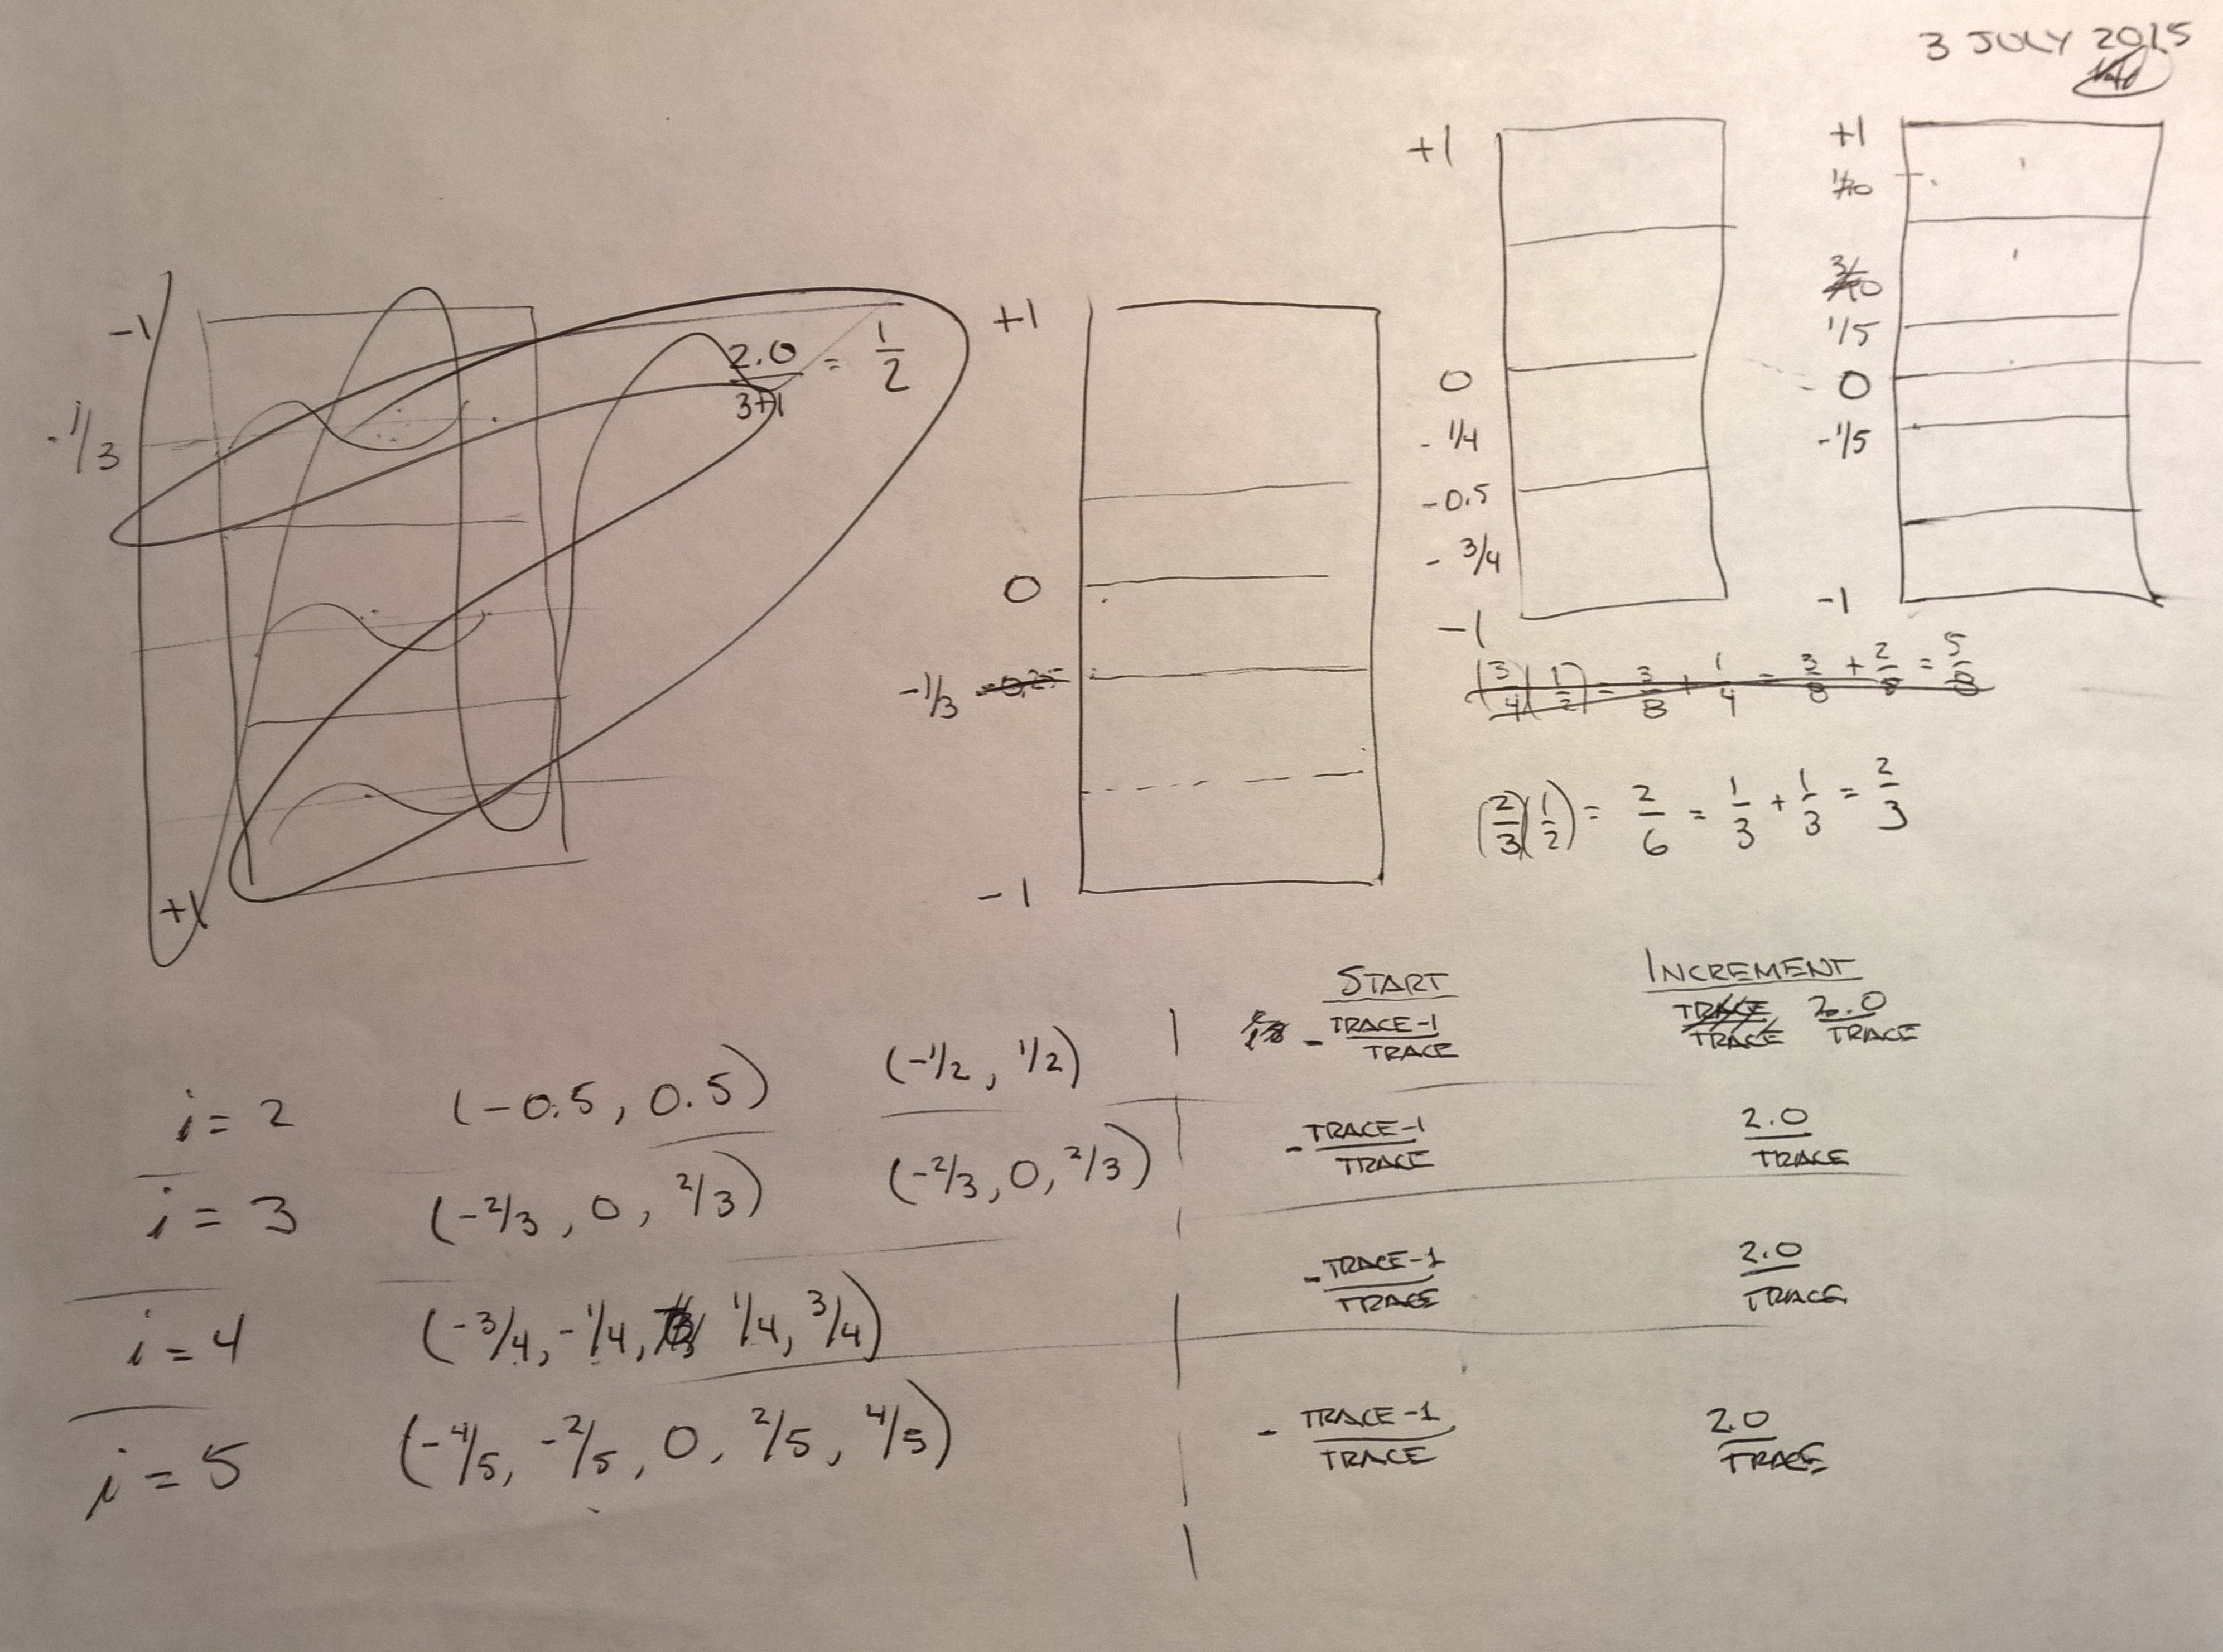 3 JULY 2015
-1
-1/3
2.0/3+1 = 1/2
+1
+1
0
-1/3 -0.25
-1
+1
0
-1/4
-0.5
-3/4
-1
+1
1/10
3/10
1/5
0
-1/5
-1
(3/4)(1/2) = 3/8 + 1/4 = 3/8 + 2/8 = 5/8
(2/3)(1/2) = 2/6 = 1/3 + 1/3 = 2/3
START INCREMENT
- TRACE-1/TRACE TRACE/TRACE 2.0/TRACE
i = 2 (-0.5, 0.5) (-1/2, 1/2)
- TRACE-1/TRACE 2.0/TRACE
i = 3 (-2/3, 0, 2/3) (-2/3, 0, 2/3)
- TRACE-1/TRACE 2.0/TRACE
i = 4 (-3/4, -1/4, 1/4, 3/4)
- TRACE-1/TRACE 2.0/TRACE
i = 5 (-4/5, -2/5, 0, 2/5, 4/5)